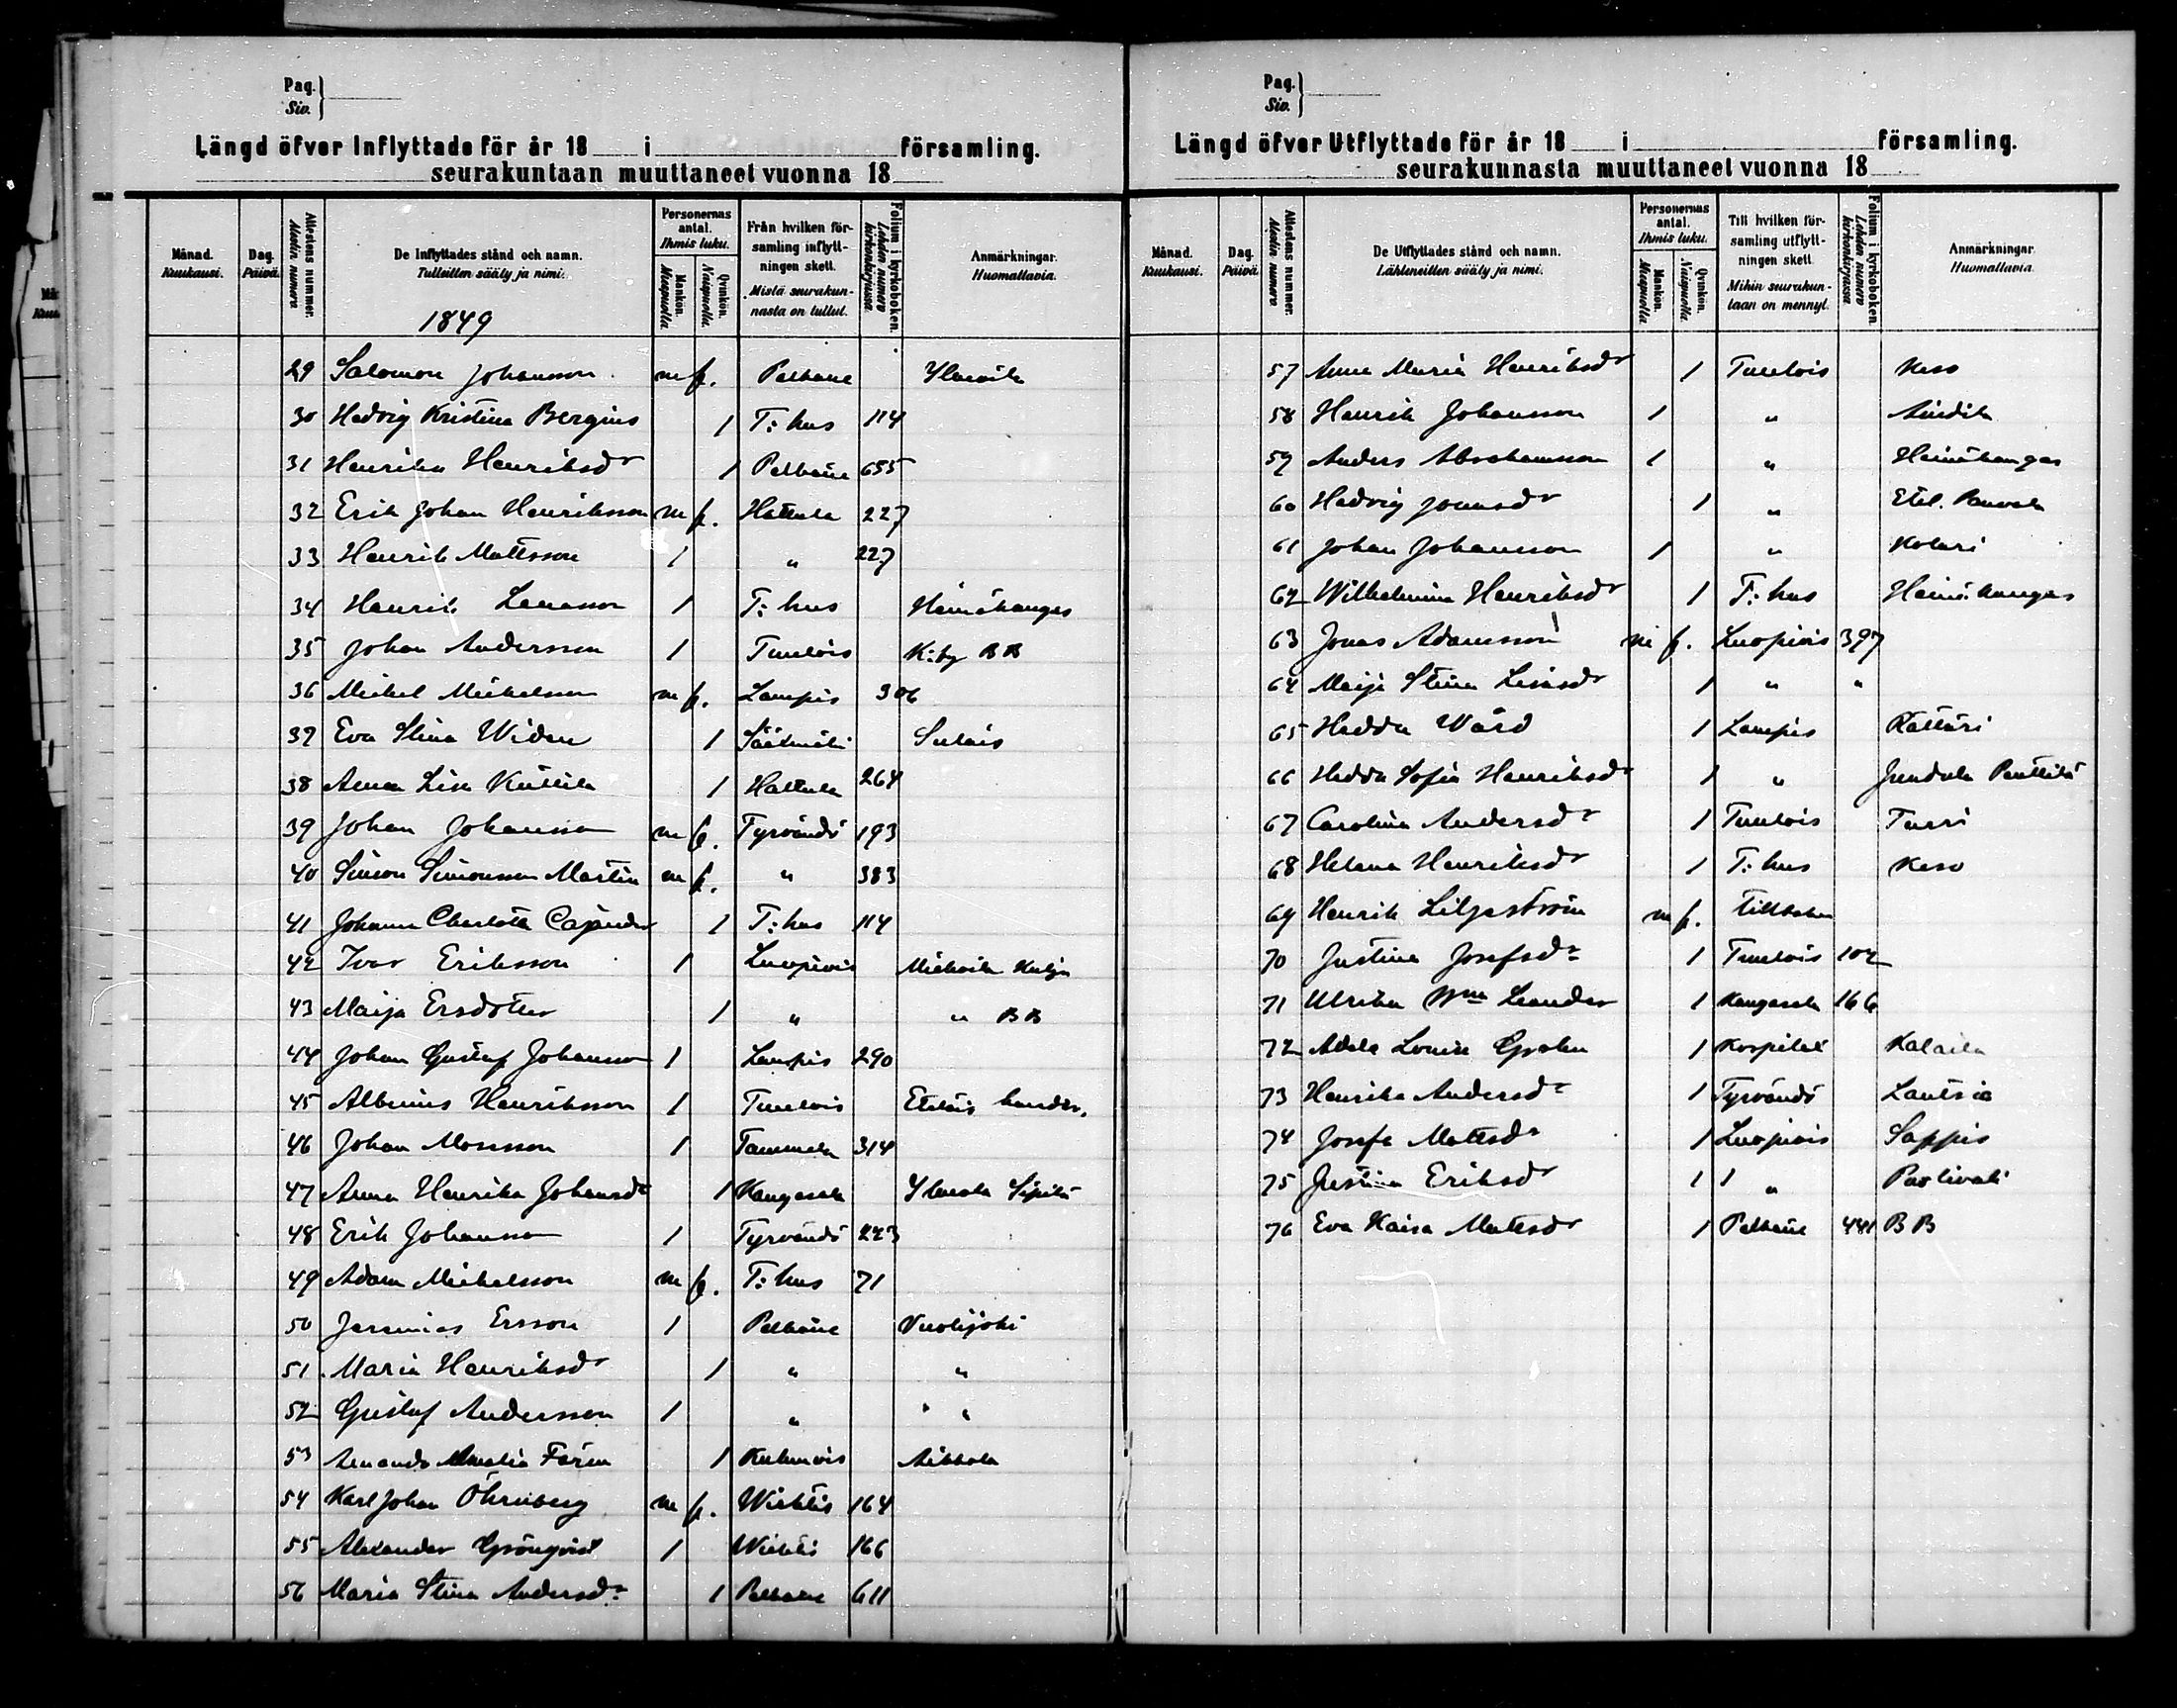 Pag.
Siv.
Längd öfver Inflyttade för år 18 i församling.
seurakuntaan muuttaneet vuonna 18
Månad. Kuukausi. Dag. Päivä. Attestens nummer. Alestin numero De Inflyttades stånd och namn. Tulleitten sääty ja nimi. Personernas antal. Ihmis luku. Mankön. Miespuolia Qvinkön. Naispuolia. Från hvilken församling inflyttningen skett. Mistä seurakunnasta on tullut. Folium i kyrkoboken. Lehden numero kirkonkirjassa Anmärkningar. Huomattavia.
1849
29 Salomon Johansson m f. Pelkäne
30 Hedvig Kristina Bergius 1 T:hus 114
31 Henrika Henriksdr 1 Pelkäne 655
32 Erik Johan Henriksson m f. Hattula 227
33 Henrik Mattsson 1 " 227
34 Henrik 1 T:hus Heinäkangas
35 Johan Andersson 1 Tuulois K:by BB
36 Mickel Mickelsson m f. Lampis 306
37 Eva Stina Widen 1 Sääksmäki
38 Anna Lisa 1 Hattula 264
39 Johan Johansson m f. Tyrvändö 193
40 Simon Simonsson Martin m f. " 383
41 Johanna Charlotta Cajander 1 T:hus 114
42 Ivar Eriksson 1 Luopiois
43 Maija Ersdotter 1 " " BB
44 Johan Gustaf Johansson 1 Lampis 290
45 Albinus Henriksson 1 Tuulois
46 Johan Mosesson 1 Tammela 314
47 Anna Henrika Johansdr 1 Kangasala
48 Erik Johansson 1 Tyrvändö 223
49 Adam Mickelsson m f. T:hus 71
50 Jeremias Ersson 1 Pelkäne Vuolijoki
51 Maria Henriksdr 1 " "
52 Gustaf Andersson 1 " " "
53 Amanda Amalia 1 Kuhmois
54 Karl Johan Öhrnberg m f. Wichtis 164
55 Alexander Grönqvist 1 Wichtis 166
56 Maria Stina Andersdr 1 Pelkäne 611
Pag.
Siv.
Längd öfver Utflyttade för år 18 i församling.
seurakunnasta muuttaneet vuonna 18
Månad. Kuukausi. Dag. Päivä. Attestens nummer. Alestin numero De Utflyttades stånd och namn. Lähteneitten sääty ja nimi. Personernas antal. Ihmis luku. Mankön. Miespuolia Qvinkön. Naispuolia. Till hvilken församling utflyttningen skett. Mihin seurakuntaan on mennyt. Folium i kyrkoboken Lehden numero kirkonkirjassa Anmärkningar. Huomattavia.
57 Anna Maria Henriksdr 1 Tuulois Keso
58 Henrik Johansson 1 "
59 Anders Abrahamsson 1 " Heinäkangas
60 Hedvig Jonasdr 1 "
61 Johan Johansson 1 " Kolari
62 Wilhelmina Henriksdr 1 T:hus Heinäkangas
63 Jonas Adamsson m f. Luopiois 397
64 Maija Stina 1 " "
65 Hedda Wård 1 Lampis Kättäri
66 Hedda Sofia Henriksdr 1 "
67 Carolina Andersdr 1 Tuulois Turri
68 Helena Henriksdr 1 T:hus Keso
69 Henrik Liljeström m f.
70 Justina Josefsdr 1 Tuulois 102
71 Ulrika Leander 1 Kangasala 166
72 Adela Lovisa 1
73 Henrika Andersdr 1 Tyrvändö Lautsia
74 Josefa Mattsdr 1 Luopiois Sappis
75 Justina Eriksdr 1 1 "
76 Eva Kaisa Mattsdr 1 Pelkäne 441 BB